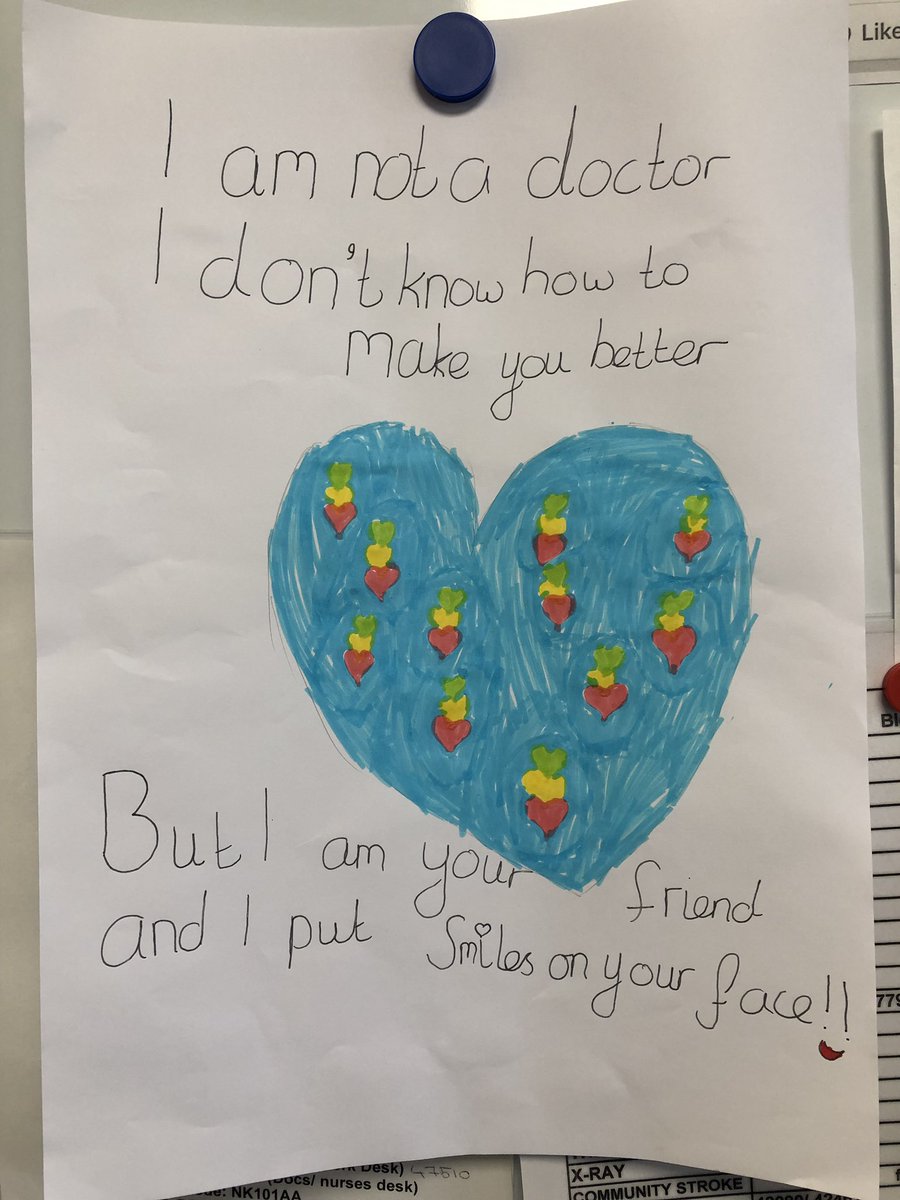 Like
I am not a doctor
I don't know how to
make you better
But I am your friend
and I put smiles on your face!!
Bl
779
Desk) 47510
(Docs/ nurses desk)
NK101AA
X-RAY
COMMUNITY STROKE